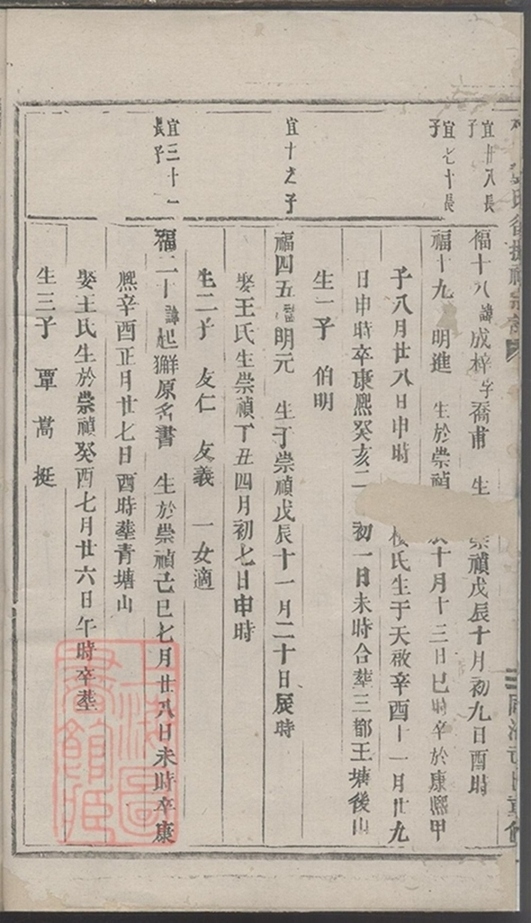 宜廿八長子
福十八諱成梓字喬甫 生 崇禎戊辰十月初九日酉時
宜七十長子
福十九 明進 生於崇禎 辰十月十三日巳時卒於康熙甲
子八月廿八日申時 氏生于天啟辛酉十一月廿九
日申時卒康熙癸亥二 初一日未時合塟三都王塘後山
生一子 伯明
宜十之子
福四五 明元 生于崇禎戊辰十一月二十日辰時
娶王氏生崇禎丁丑四月初七日申時
生二子 友仁 友義 一女適
宜三十一長子
福二十諱起獬原名書 生於崇禎己巳七月廿八日未時卒康
熙辛酉正月廿七日酉時塟青塘山
娶王氏生於崇禎癸酉七月廿六日午時卒塟
生三子 覃 嵩 挺
上海圖書館藏